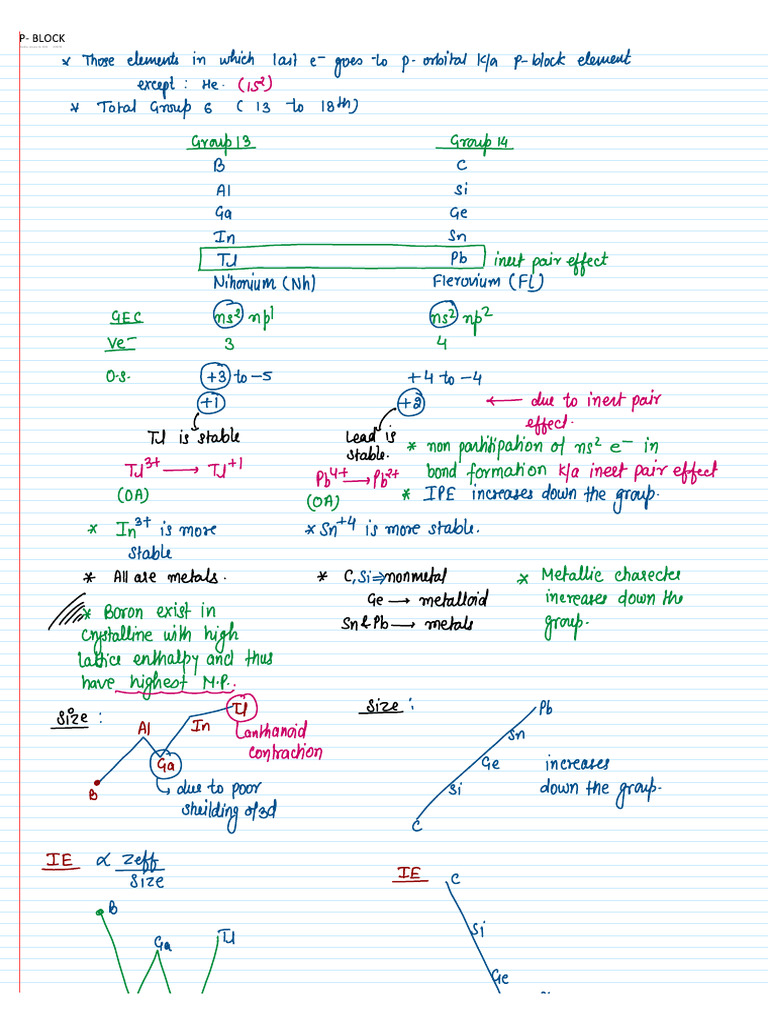 P- BLOCK
* Those elements in which last e⁻ goes to p-orbital k/a p-block element
except : He. (1s²)
* Total Group 6 ( 13 to 18th)
Group 13 Group 14
B C
Al Si
Ga Ge
In Sn
Tl Pb inert pair effect
Nihonium (Nh) Flerovium (FL)
GEC ns² np¹ ns² np²
Ve⁻ 3 4
O.S. +3 to -5 +4 to -4
+1 +2 ← due to inert pair
effect.
Tl is stable Lead is
stable.
* non partitipation of ns² e⁻ in
bond formation k/a inert pair effect
Tl³⁺ → Tl⁺¹ Pb⁴⁺ → Pb²⁺
(OA) (OA) * IPE increases down the group.
* In³⁺ is more
stable
* Sn⁺⁴ is more stable.
* All are metals.
* C, Si ⇒ nonmetal
Ge → metalloid
Sn & Pb → metals
* Metallic charecter
increases down the
group.
* Boron exist in
crystalline with high
lattice enthalpy and thus
have highest M.P..
Size :
B Al Ga In Tl
Lanthanoid
contraction
due to poor
sheilding of 3d
Size :
C Si Ge Sn Pb
increases
down the group.
IE ∝ Zeff
size
B Ga Tl
IE
C
Si
Ge